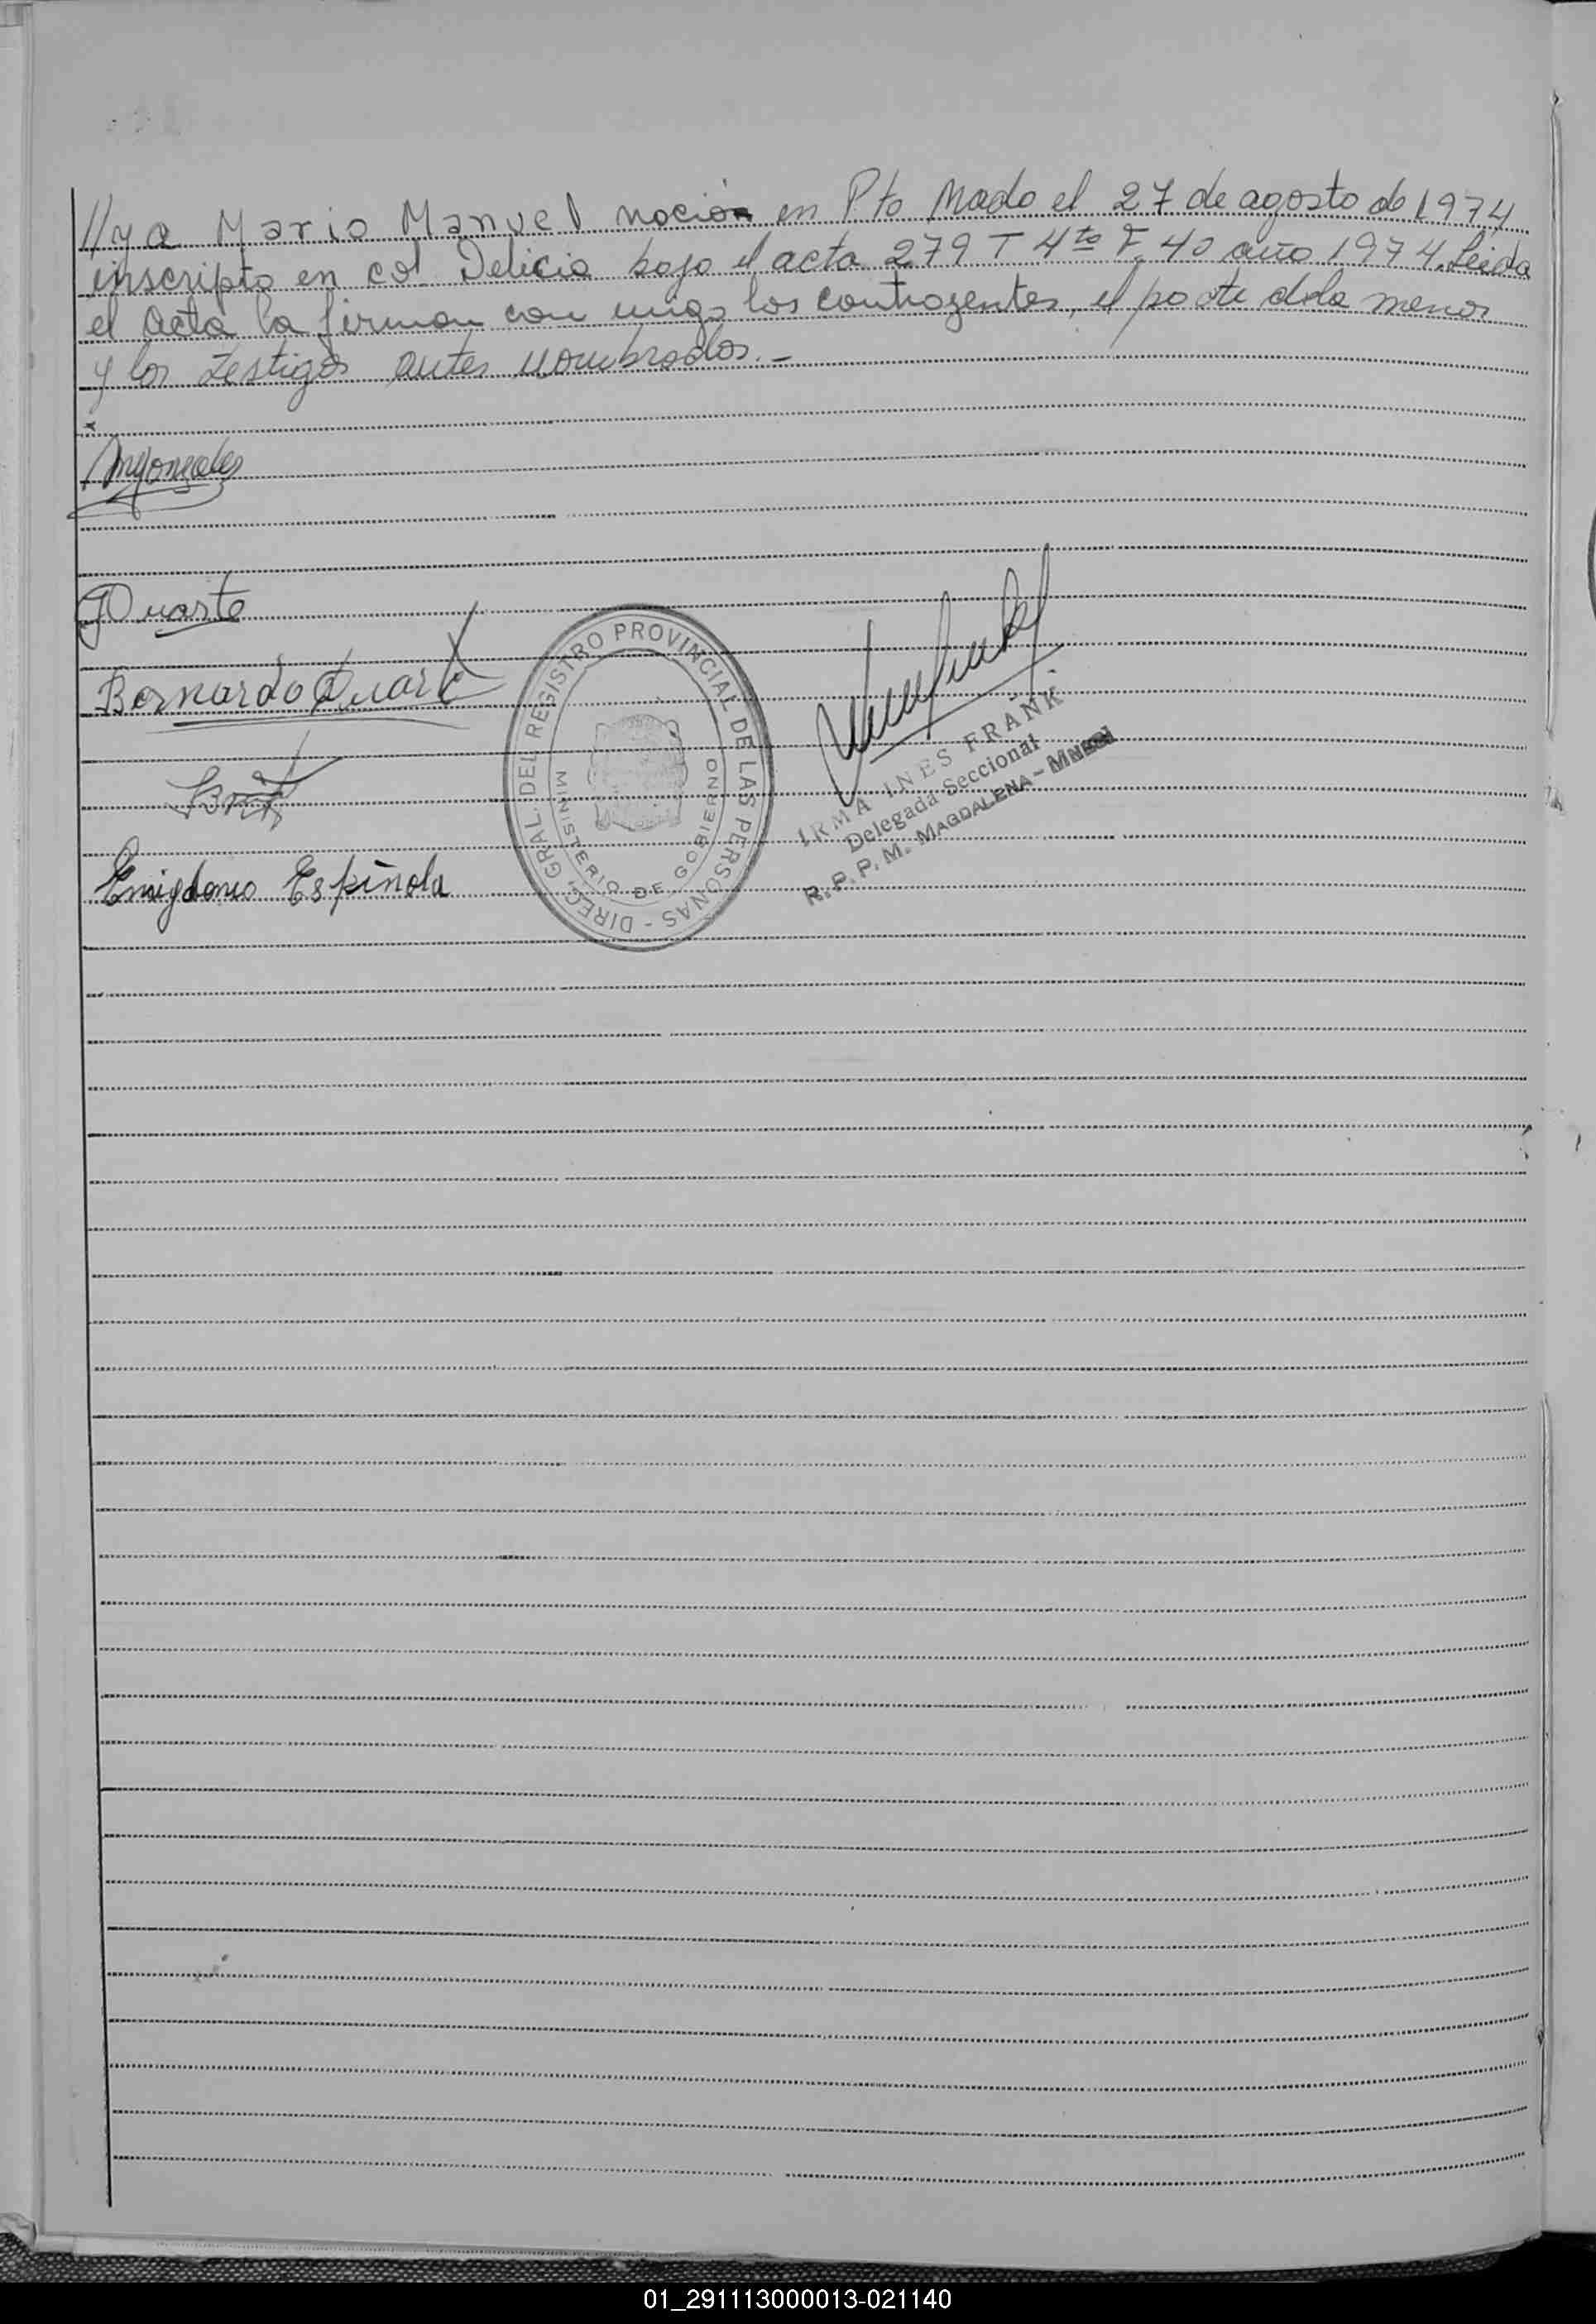 //y a Mario Manuel nacion en Pto Mado el 27 de agosto de 1974
inscripto en col. Delicia bajo el acta 279 T 4to F. 40 año 1974. Leida
el Acta la firman con migo los contrayentes, el padre de la menor
y los testigos antes nombrados.-
Duarte
Bernardo Duarte
Emigdonio Espínola
DIREC. GRAL. DEL REGISTRO PROVINCIAL DE LAS PERSONAS -
MINISTERIO DE GOBIERNO
IRMA INES FRANK
Delegada Seccional
R. P. P. M. MAGDALENA -
01_291113000013-021140